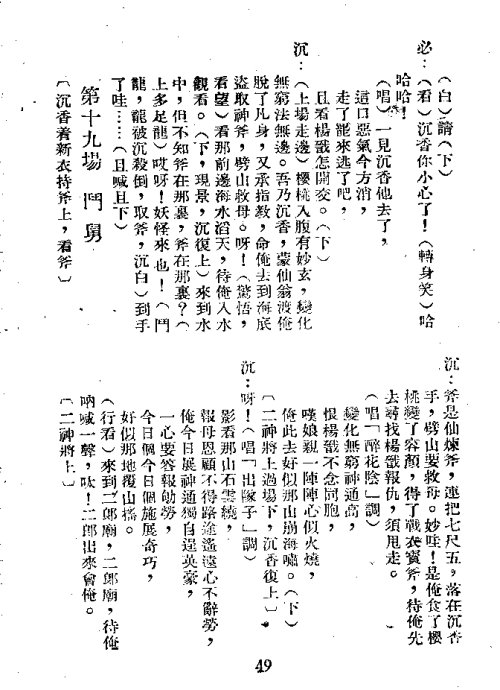 （白）請（下）
必：（看）沉香你小心了！（轉身笑）哈
哈哈！
（唱）一見沉香他去了，
這口惡氣今方消，
走了罷來逃了吧，
且看楊戩怎開交。（下）
沉：（上場走邊）櫻桃入腹有妙玄，變化
無窮法無邊。吾乃沉香，蒙仙翁渡俺
脫了凡身，又承指教，命俺去到海底
盜取神斧，劈山救母。呀！（驚悟，
看望）看那前邊海水滔天，待俺入水
觀看。（下，現景，沉復上）來到水
中，但不知斧在那裏，斧在那裏？（
上多足龍）哎呀！妖怪來也！（鬥
龍，龍被沉殺倒，取斧，沉白）到手
了哇……（且喊且下）
第十九場　鬥舅
〔沉香着新衣持斧上，看斧〕
沉：斧是仙煉斧，連把七尺五，落在沉香
手，劈山要救母。妙哇！是俺食了櫻
桃變了容顏，得了戰衣寶斧，待俺先
去尋找楊戩報仇，須甩走。
（唱「醉花陰」調）
變化無窮神通高，
恨楊戩不念同胞，
嘆娘親一陣陣心似火燒，
俺此去好似那山崩海嘯。（下）
〔二神將上過場下，沉香復上〕
沉：呀！（唱「出隊子」調）
影看那山石雲繞，
報母恩顧不得路途遙遠心不辭勞，
俺今日展神通獨自逞英豪，
一心要答報劬勞，
今日個今日個施展奇巧，
好似那地覆山搖。
（行看）來到二郎廟，二郎廟，待俺
吶喊一聲，呔！二郎出來會俺。
〔二神將上〕
49